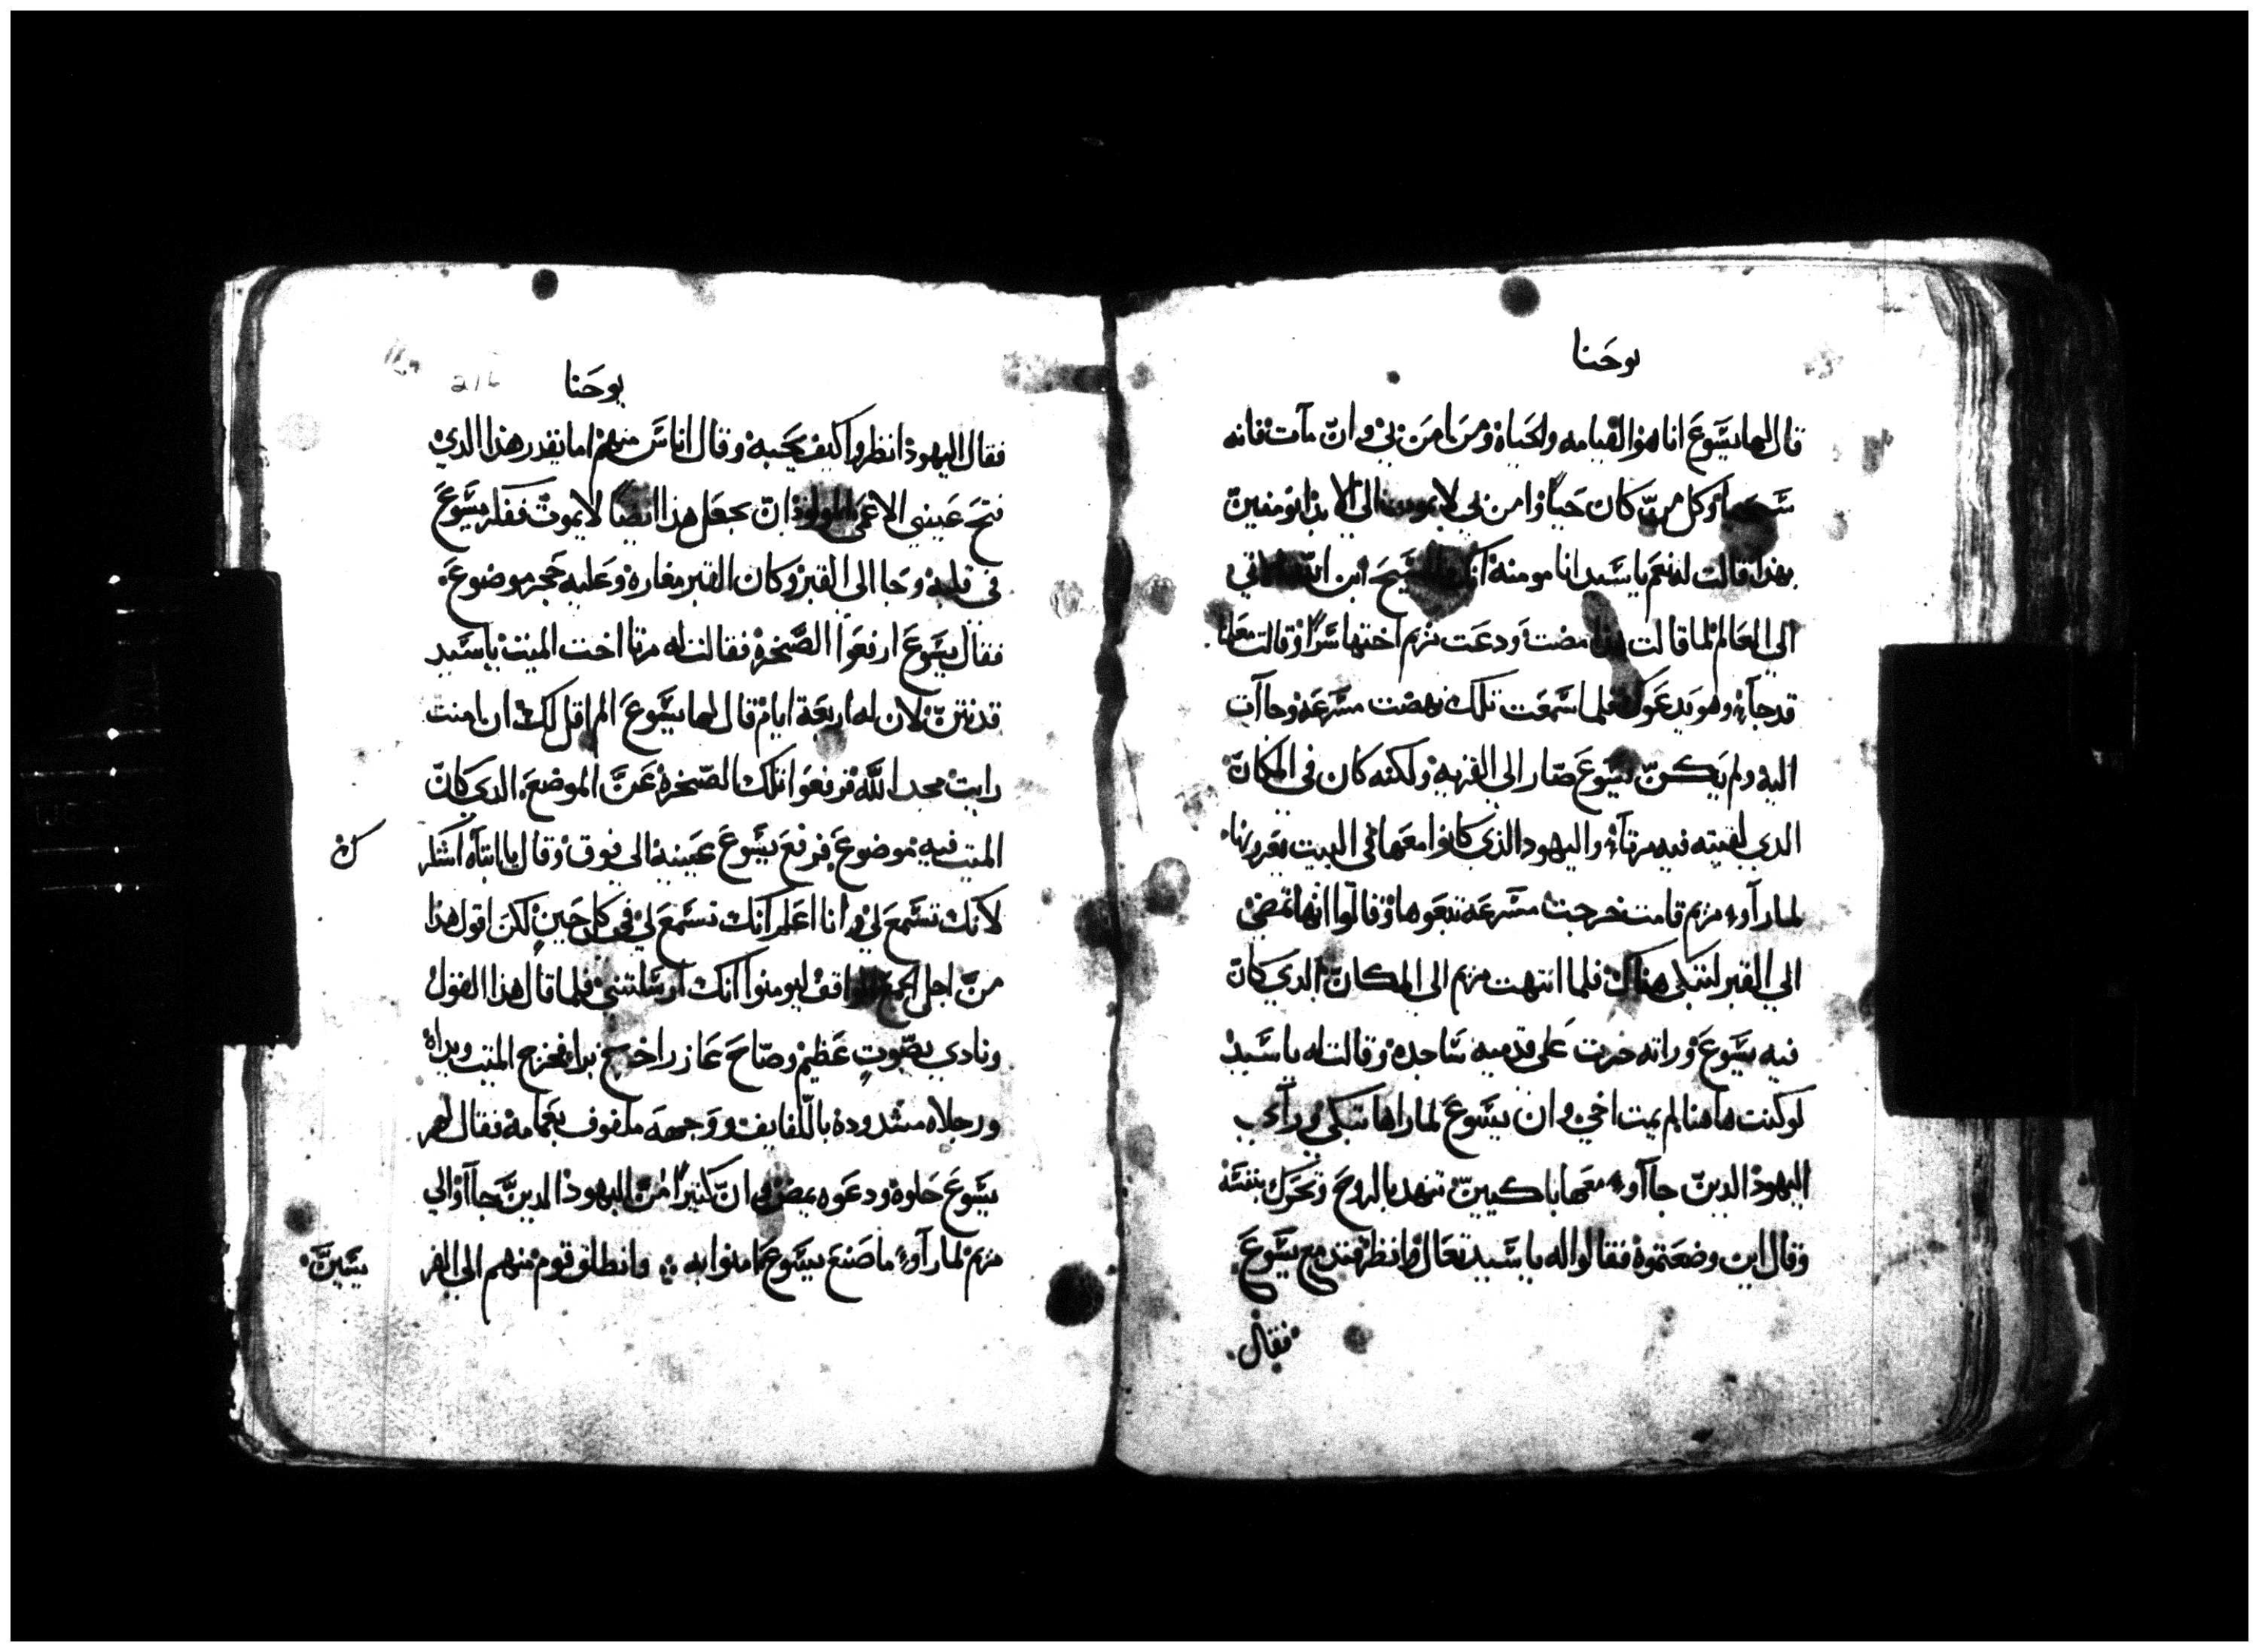 يوحنا
قال لها يسوع انا هو القيامه ولحياه ومن امن بي وان مات فانه
سيحيا وكل من كان حيا وامن بي لا يموت الى الابد اتومنين
بهذا قالت له نعم يا سيد انا مومنه انك المسيح ابن الله الاتي
الى العالم لما قالت هذا مضت ودعت مريم اختها سرا وقالت معلمنا
قد جاء وهو يدعوك فلما سمعت تلك نهضت مسرعه وجاات
اليه ولم يكن يسوع صار الى القريه ولكنه كان في المكان
الذي لقيته فيه مرتا واليهود الذي كانوا معها في البيت يعزونها
لما راوا مريم قامت خرجت مسرعه تبعوها وقالوا انها تمضي
الى القبر لتبكي هناك فلما انتهت مريم الى المكان الذي كان
فيه يسوع وراته خرت على قدميه ساجده وقالت له يا سيد
لو كنت هاهنا لم يمت اخي وان يسوع لما راها تبكي وراي
اليهود الدين جااوا معها باكيين تنهد بالروح وتحرك بنفسه
وقال اين وضعتموه فقالوا له يا سيد تعال وانظر فتدمع يسوع
فقال
يوحنا
216
فقال اليهود انظروا كيف يحبه وقال اناس منهم اما يقدر هذا الدي
فتح عيني الاعمى المولود ان يجعل هذا ايضا لا يموت ففكر يسوع
في قلبه وجا الى القبر وكان القبر مغاره وعليه حجر موضوع
فقال يسوع ارفعوا الصخره فقالت له مرتا اخت الميت يا سيد
قد نتن لان له اربعة ايام قال لها يسوع الم اقل لك ان امنت
رايت مجد الله فرفعوا تلك الصخره عن الموضع الدي كان
الميت فيه موضوع فرفع يسوع عينيه الى فوق وقال يا ابتاه اشكر
ك
لانك تسمع لي وانا اعلم انك تسمع لي في كل حين لكن اقول هدا
من اجل الجمع الواقف ليومنوا انك ارسلتني فلما قال هذا القول
ونادي بصوت عظيم وصاح عازر اخرج برا فخرج الميت ويداه
ورجلاه مشدوده باللفايف ووجهه ملفوف بعمامه فقال لهم
يسوع حلوه ودعوه يمضي وان كثيرا من اليهود الدين جااوا الي
مريم لما راوا ما صنع يسوع امنوا به وانطلق قوم منهم الى الفر
يسين